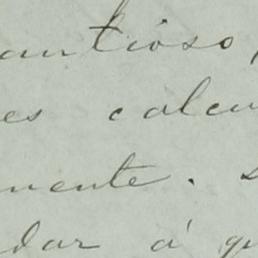 antioso,
es calcu
mente. s
dar á qu